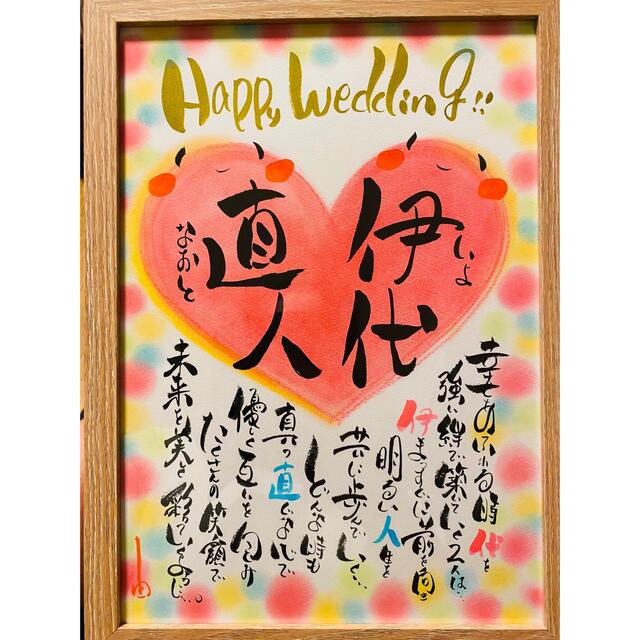 Happy Wedding!!
伊代
いよ
直人
なおと
幸せあふれる時代を
強い絆で築いていく2人は…
伊まっすぐに前を向き
明るい人生を
共に歩んでいく…
どんな時も
真っ直ぐな心で
優しく互いを包み
たくさんの笑顔で
未来を美しく彩っていく